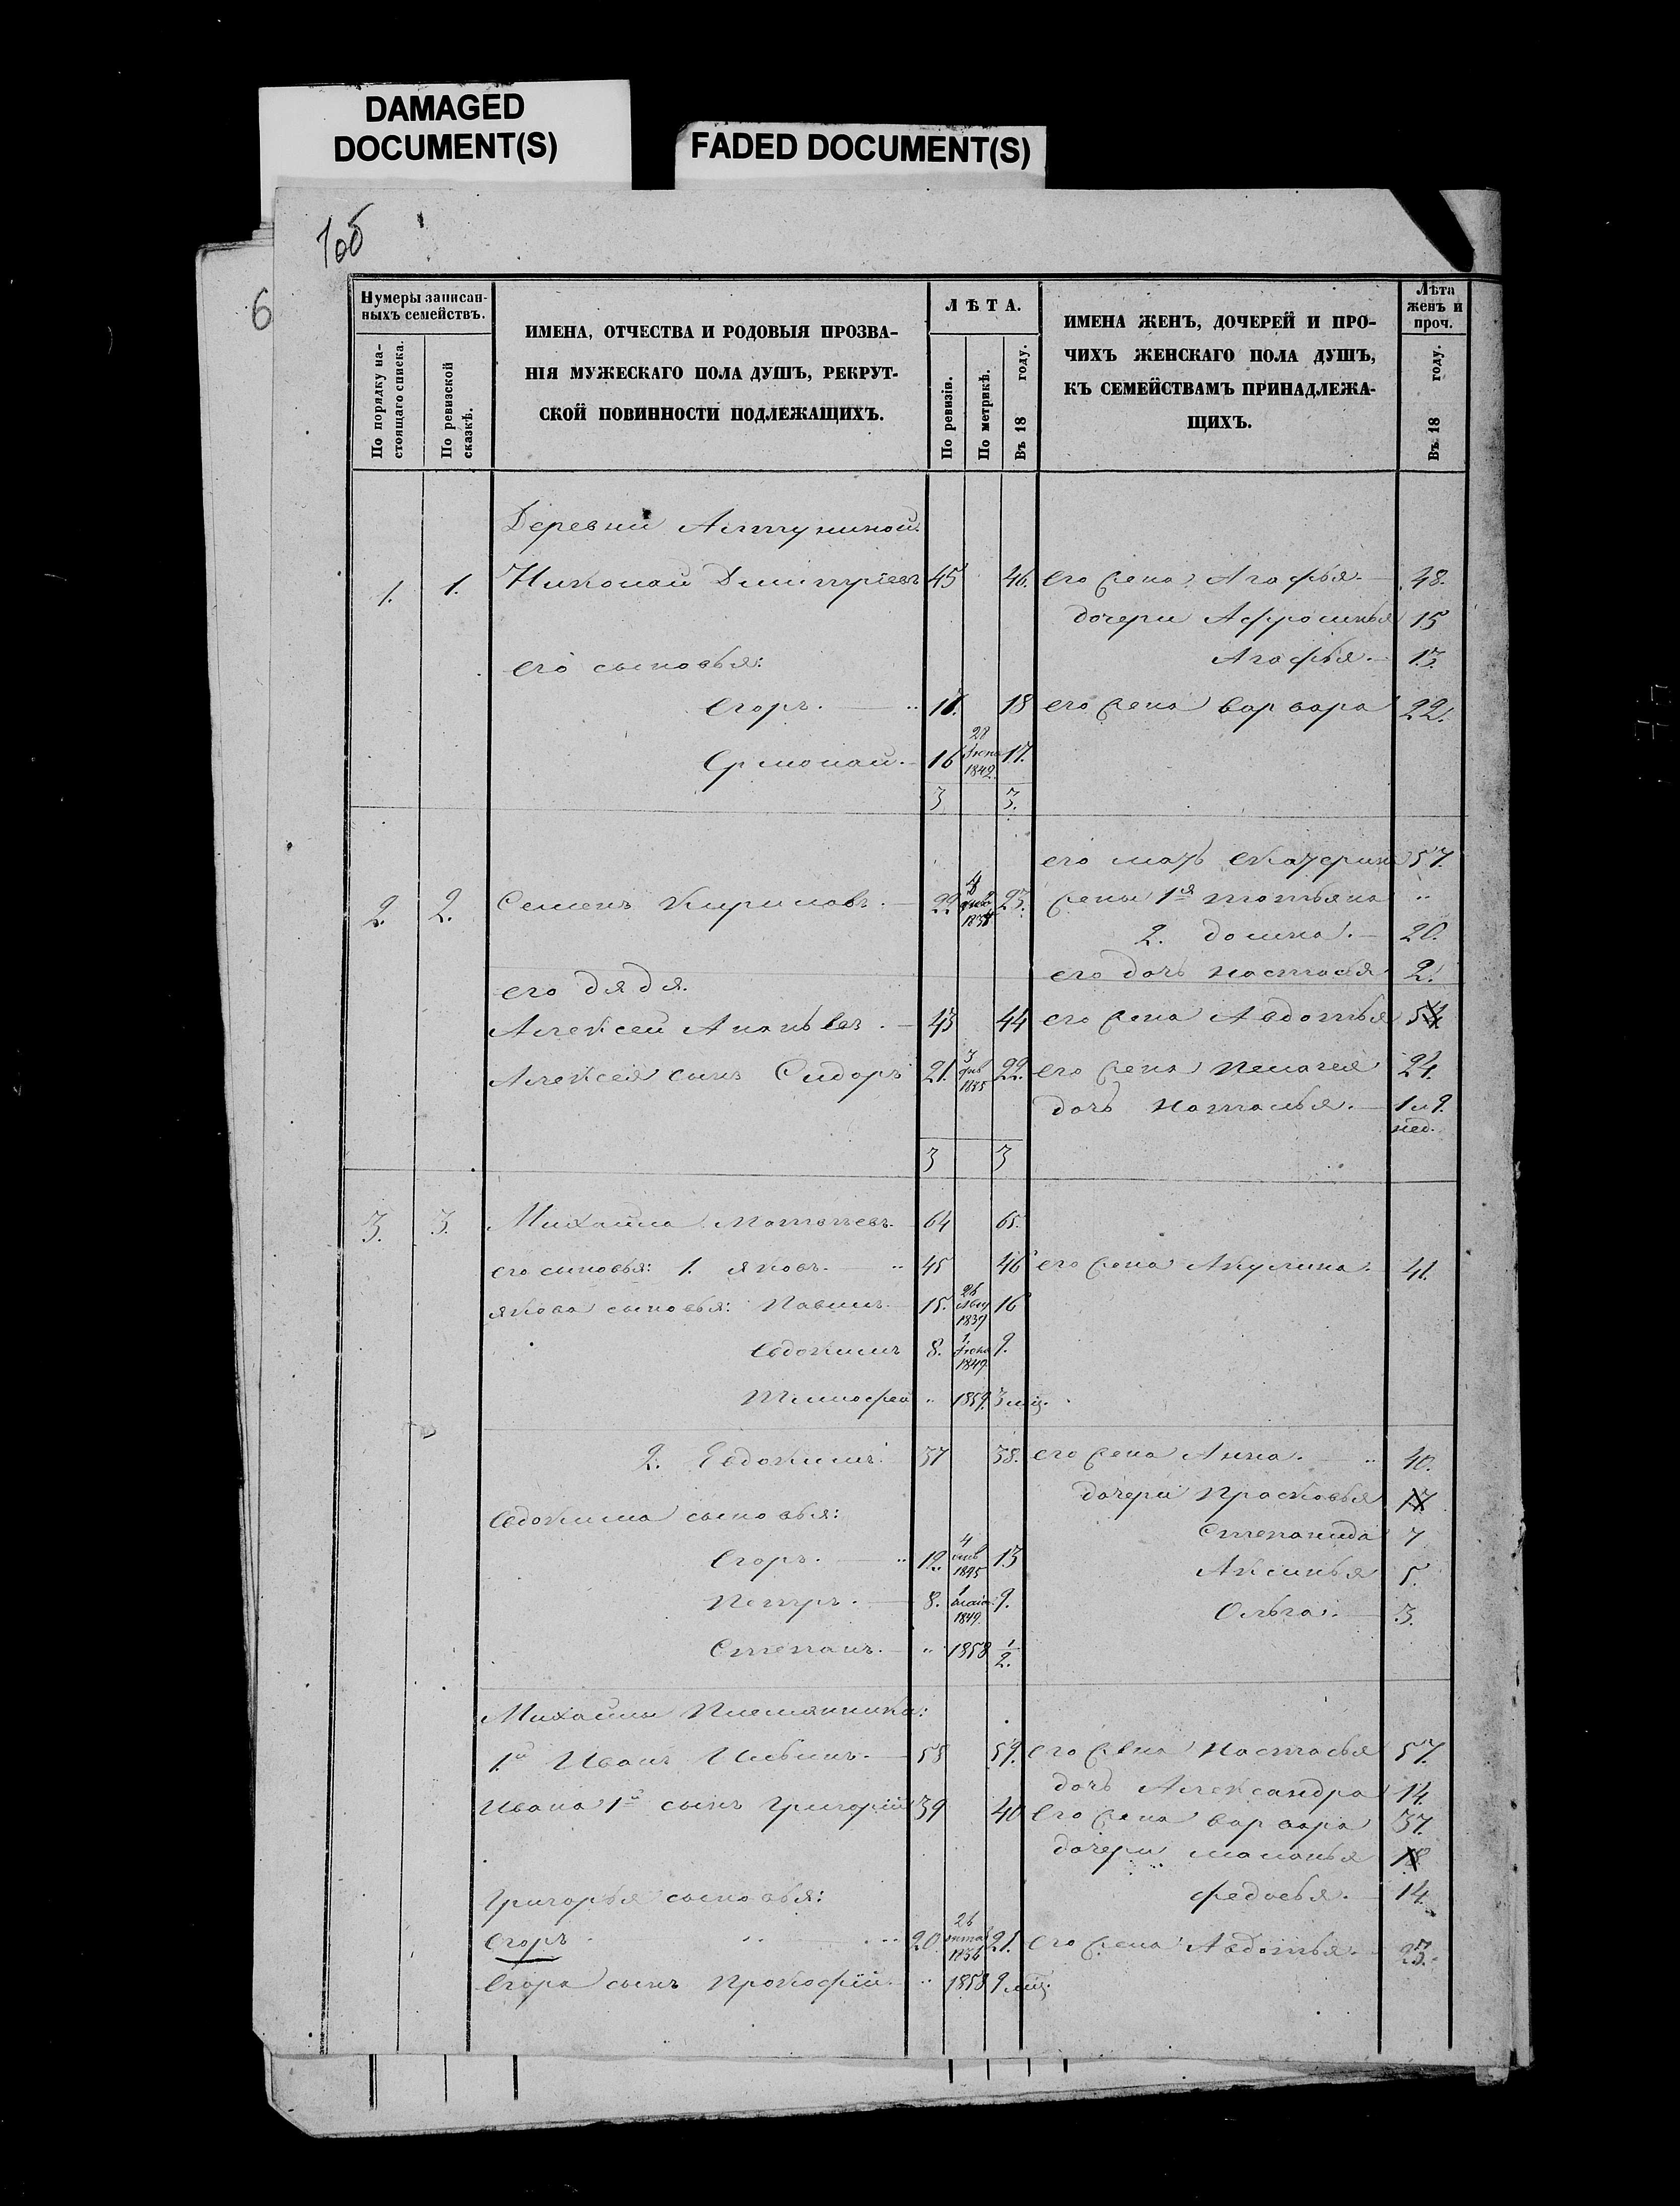 DAMAGED
DOCUMENT(S)
FADED DOCUMENT(S)
6
Нумеры записан-
ныхъ семействъ.
По порядку на-
стоящаго списка.
По ревизской
сказкѣ.
ИМЕНА, ОТЧЕСТВА И РОДОВЫЯ ПРОЗВА-
НІЯ МУЖЕСКАГО ПОЛА ДУШЪ, РЕКРУТ-
СКОЙ ПОВИННОСТИ ПОДЛЕЖАЩИХЪ.
ЛѢТА.
По ревизіи.
По метрикѣ.
Въ 18 году.
ИМЕНА ЖЕНЪ, ДОЧЕРЕЙ И ПРО-
ЧИХЪ ЖЕНСКАГО ПОЛА ДУШЪ,
КЪ СЕМЕЙСТВАМЪ ПРИНАДЛЕЖА-
ЩИХЪ.
Лѣта
женъ и
проч.
Въ 18 году.
Деревни
1. 1. Николай Димитріевъ 45 46. его жена Агафья 48.
дочери Афросинья 15
Агафья 13.
его сыновья:
Егоръ 18 его жена Варвара 22.
16 28 Іюня 1842. 17.
3 3.
его мать Екатерина 57.
2. 2. Семенъ Кириловъ 22 23. жены 1я Татьяна "
2. Домна 20.
его дочь Настасья 2.
его дядя
Алексей Ананьевъ 43 44 его жена Авдотья
Алексея сынъ Сидоръ 21. 3 1835 22. его жена Пелагея 24.
дочь Наталья 1 и 9.
нед.
3 3
3. 3. Михайла 64 65.
его сыновья: 1. Яковъ 45 46 его жена Акулина 41.
Якова сыновья: 15. 26 1839 16
Евдокимъ 8. 1 Іюня 1849. 9.
Тимофей " 1859. 3 мѣц.
2. Евдокимъ 37 38. его жена Анна 40.
дочери Прасковья
Евдокима сыновья:
Степанида 7
Егоръ 12. 4 1845 13
Аксинья 5.
Петръ 8. 1 маія 1849. 9.
Ольга 3.
Степанъ " 1858 1/2.
Михайлы племянники:
1й Иванъ Ильинъ 58 59. его жена Настасья 57.
дочь Александра 14.
Ивана 1й сынъ Григорій 39 40 его жена Варвара 37.
дочери Маланья
Григорья сыновья:
Федосья 14.
Егоръ 20. 26 1836 21. его жена Авдотья
Егора сынъ Прокофій " 1858 9 мѣц.